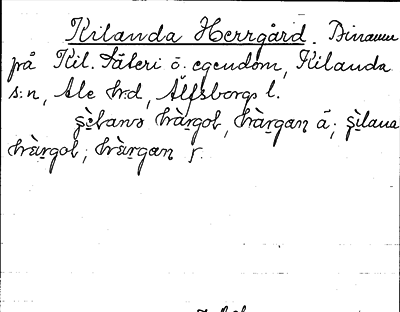 Kilanda Herrgård. Binamn
på Kil. Säteri o. egendom, Kilanda
s:n, Ale h:d, Älfsborgs l.
hàrgol, hàrgan ä;
hàrgol; hàrgan y.